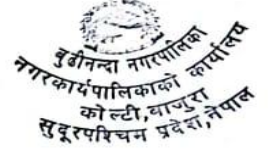 बुढीनन्दा नगरपालिका
नगरकार्यपालिकाको कार्यालय
कोल्टी,बाजुरा
सुदूरपश्चिम प्रदेश,नेपाल